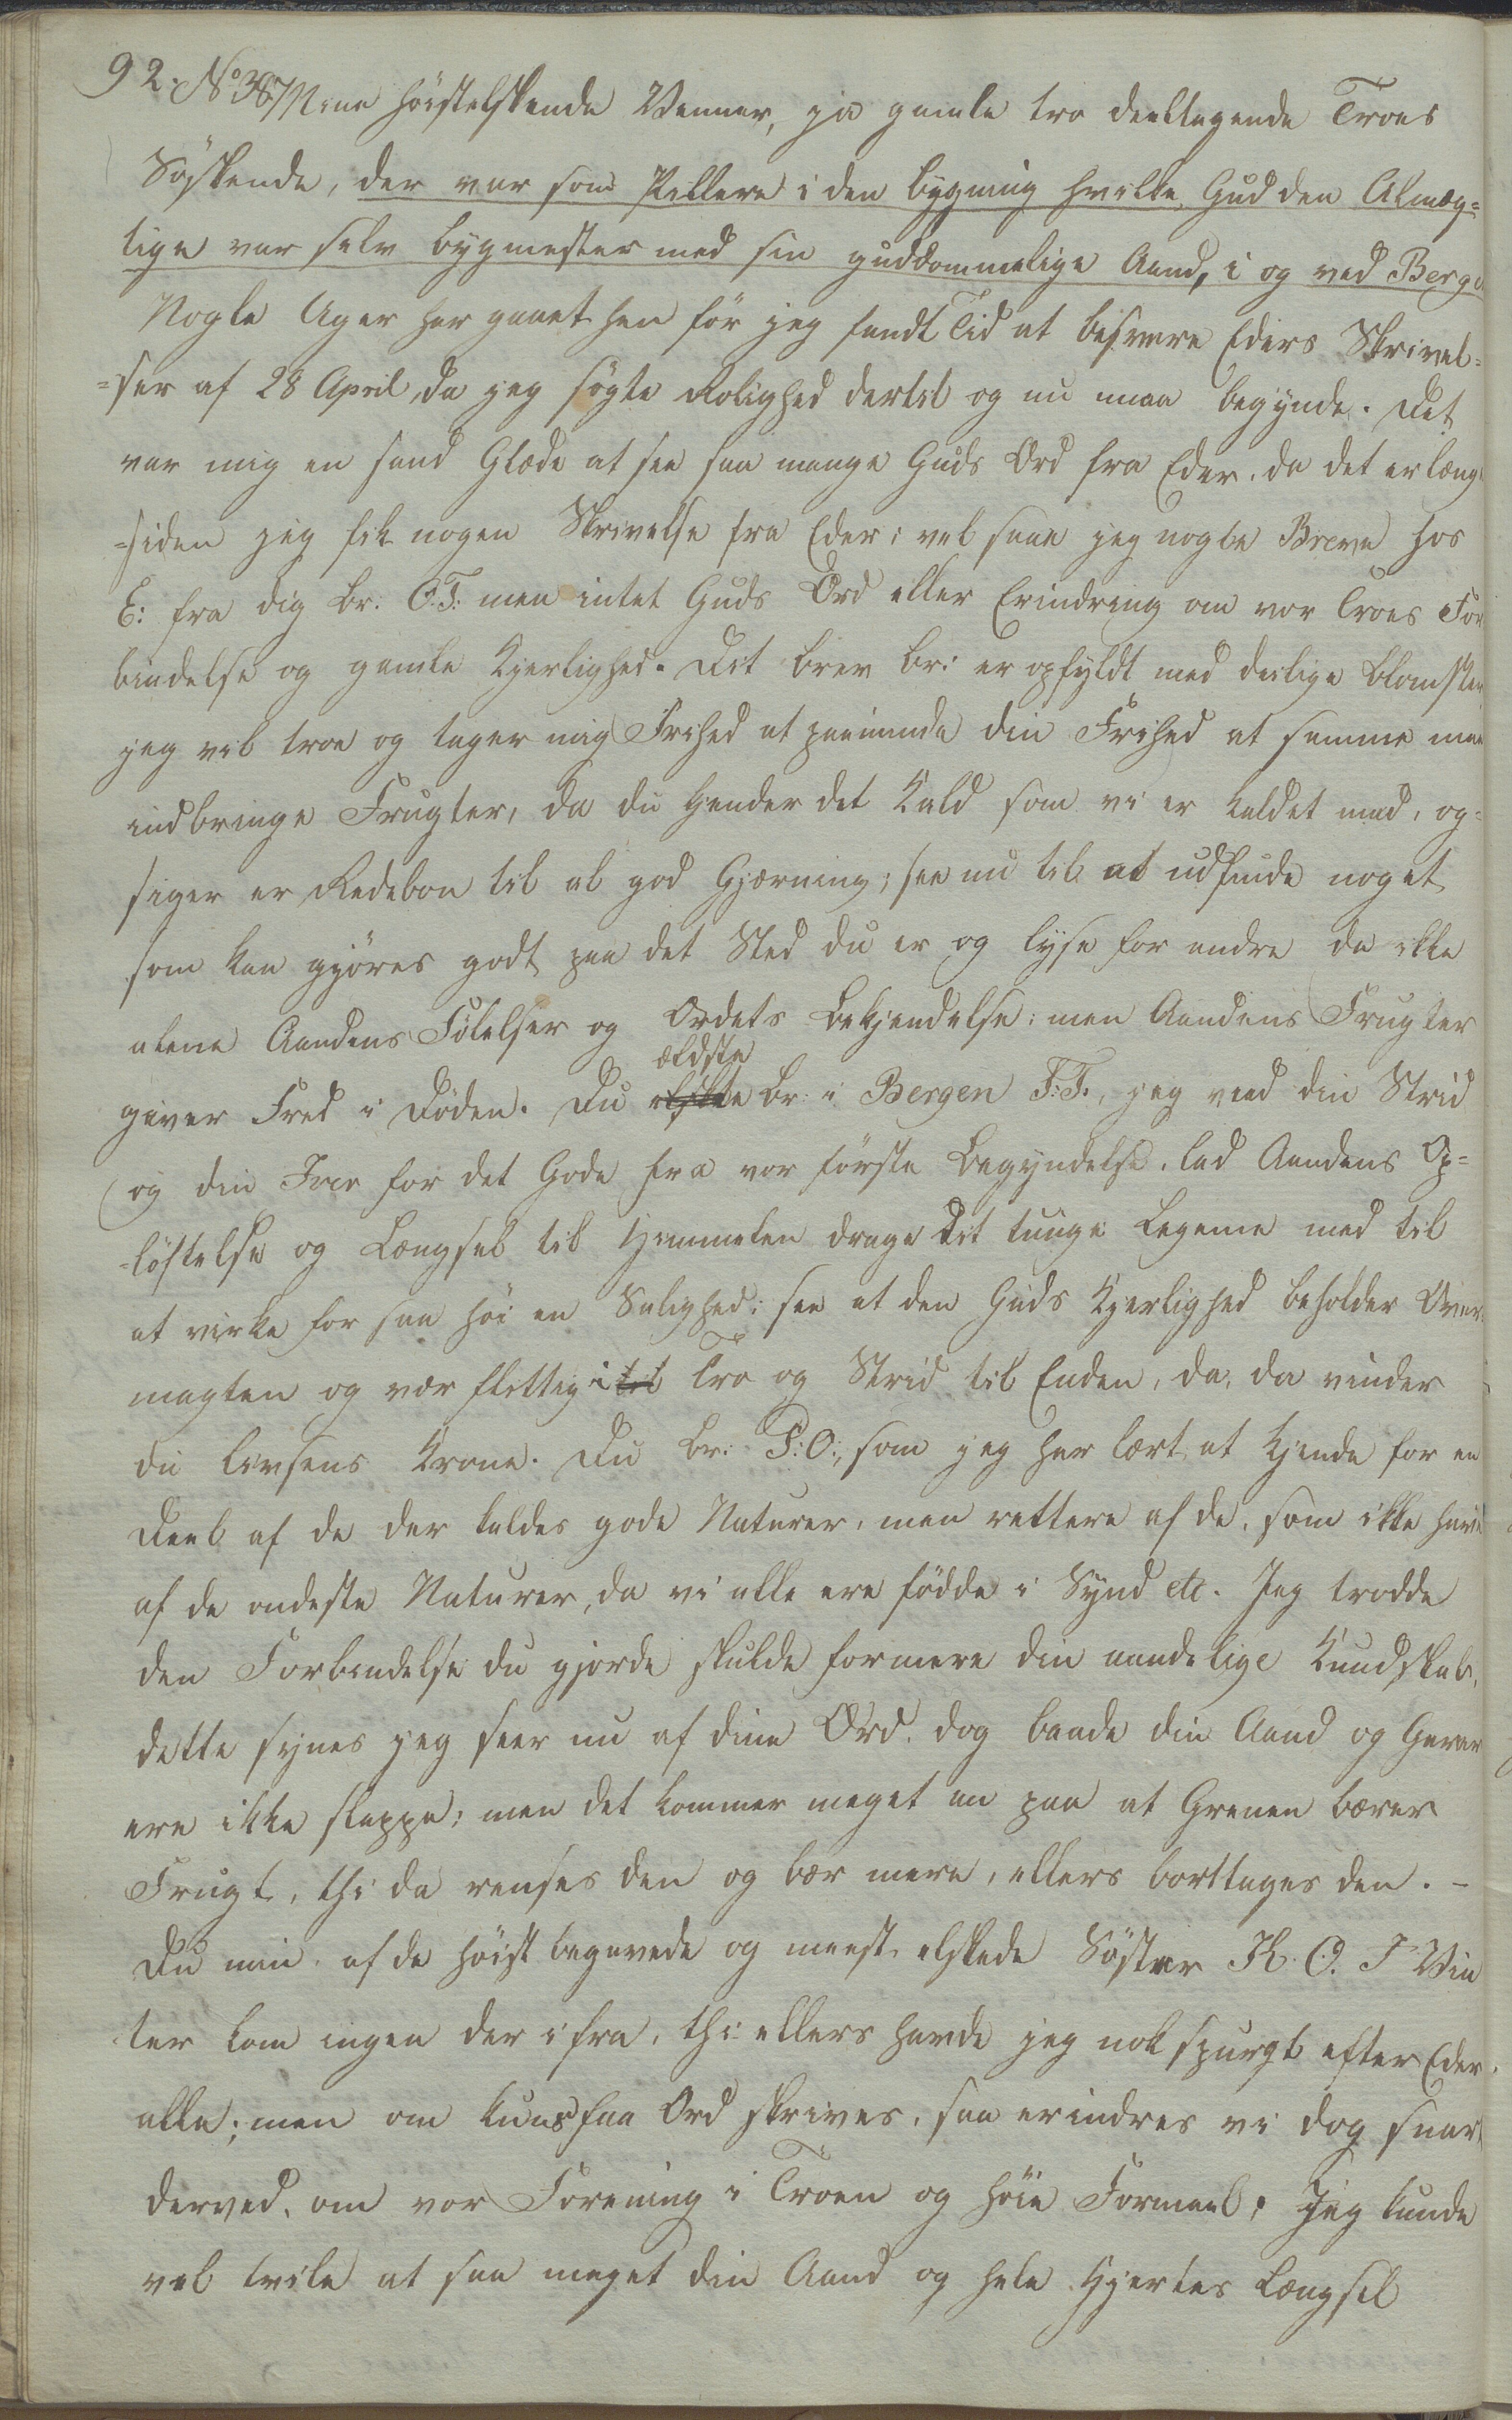 92. No 38 Mine höistelskende Venner, ja gamle tro deeltagende Troes
Söskende, der var som Pillere i den bygning hvilke Gud den Almæg=
tige var selv bygmester med sin guddommelige Aand, i og ved Berge
Nogle Uger har gaaet hen för jeg fandt Tid at besvare Eders Skrivel=
=ser af 28 April, da jeg søgte Rolighed dertil og nu maa begynde. Det
var mig en sand Glæde at see saa mange Guds Ord fra Eder, da det er læng
=siden jeg fik nogen Skrivelse fra Eder; vel saae jeg nogle Breve hos
E: fra dig Br: O:T: men intet Guds Ord eller Erindring om vor Troes For
bindelse og gamle Kjerlighed. Dit brev br: er opfyldt med deilige blomster
jeg vil troe og tager mig Frihed at paaminde din Frihed at samme maa
indbringe Frugter, da du kjender det Kald som vi er kaldet med, og=
siger er Redebon til al god Gjærning; see nu til at udfinde noget
som kan gjöres godt paa det Sted du er og lyse for andre da ikke
alene Aandens Fölelser og Ordets Bekjendelse; men Aandens Frugter
ældste
giver Fred i Döden. Du Br: i Bergen T:T:, jeg veed din Strid
og din Iver for det Gode fra vor förste Begyndelse, lad Aandens Op=
=löftelse og Længsel til Himmelen drage dit tunge Legeme med til
at virke for saa höi en Salighed; see at den Guds Kjerlighed beholder Over
magten og vær flittig i til Tro og Strid til Enden, da, da vinder
du livsens Krone. Du Br: P:O:, som jeg har lært at kjende for en
Deel af de der kaldes gode Naturer, men rettere af de, som ikke have
af de ondeste Naturer, da vi alle ere födde i Synd etc. Jeg trodde
den Forbindelse du gjorde skulde formere din aandelige Kundskab,
dette synes jeg seer nu af dine Ord, dog baade din Aand og Gaver
ere ikke slappe; men det kommer meget an paa at Grenen bærer
Frugt, thi da renses den og bær mere, ellers borttages den. -
Du min af de höist begavede og meest elskede Söster K. O. I Vin
ter kom ingen der ifra, thi ellers havde jeg nok spurgt efter Eder
alle; men om kuns faa Ord skrives, saa erindres vi dog snar
derved, om vor Forening i Troen og höie Formaal; Jeg kunde
vel tvile at saa meget din Aand og hele Hjertes Længsel